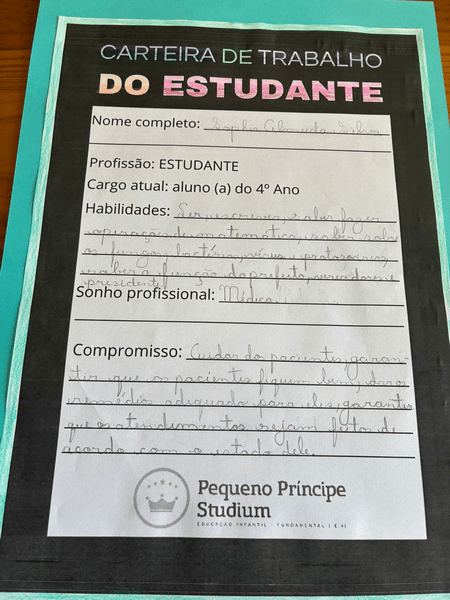 CARTEIRA DE TRABALHO
DO ESTUDANTE
Nome completo: Sophia Almeida Silva
Profissão: ESTUDANTE
Cargo atual: aluno (a) do 4º Ano
Habilidades: Ler, escrever, saber fazer
operações de matemática, saber sobre
os fungos, bactéria, vírus e protozoários,
saber a função do prefeito, vereadores e
presidente
Sonho profissional: Médica
Compromisso: Cuidar do pacientes, garan-
tir que os pacientes fiquem bem, dar o
remédio adequado para eles, garantir
que os atendimentos sejam feitos de
acordo com o estado dele.
Pequeno Príncipe
Studium
EDUCAÇÃO INFANTIL - FUNDAMENTAL I E II